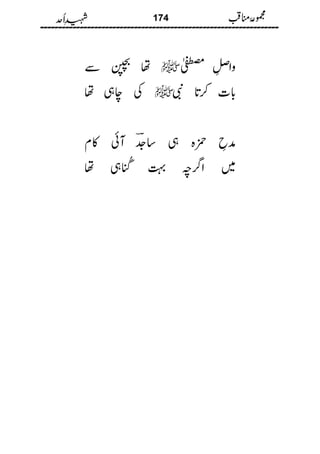 مجموعۂ مناقب 174 شہیدِ اُحد
واصلِ مصطفیٰ ﷺ تھا بچپن سے
بات کرتا نبی ﷺ کی چاہی تھا
مدحِ حمزہ ہی ساجدؔ آئی کام
میں اگرچہ بہت گُناہی تھا